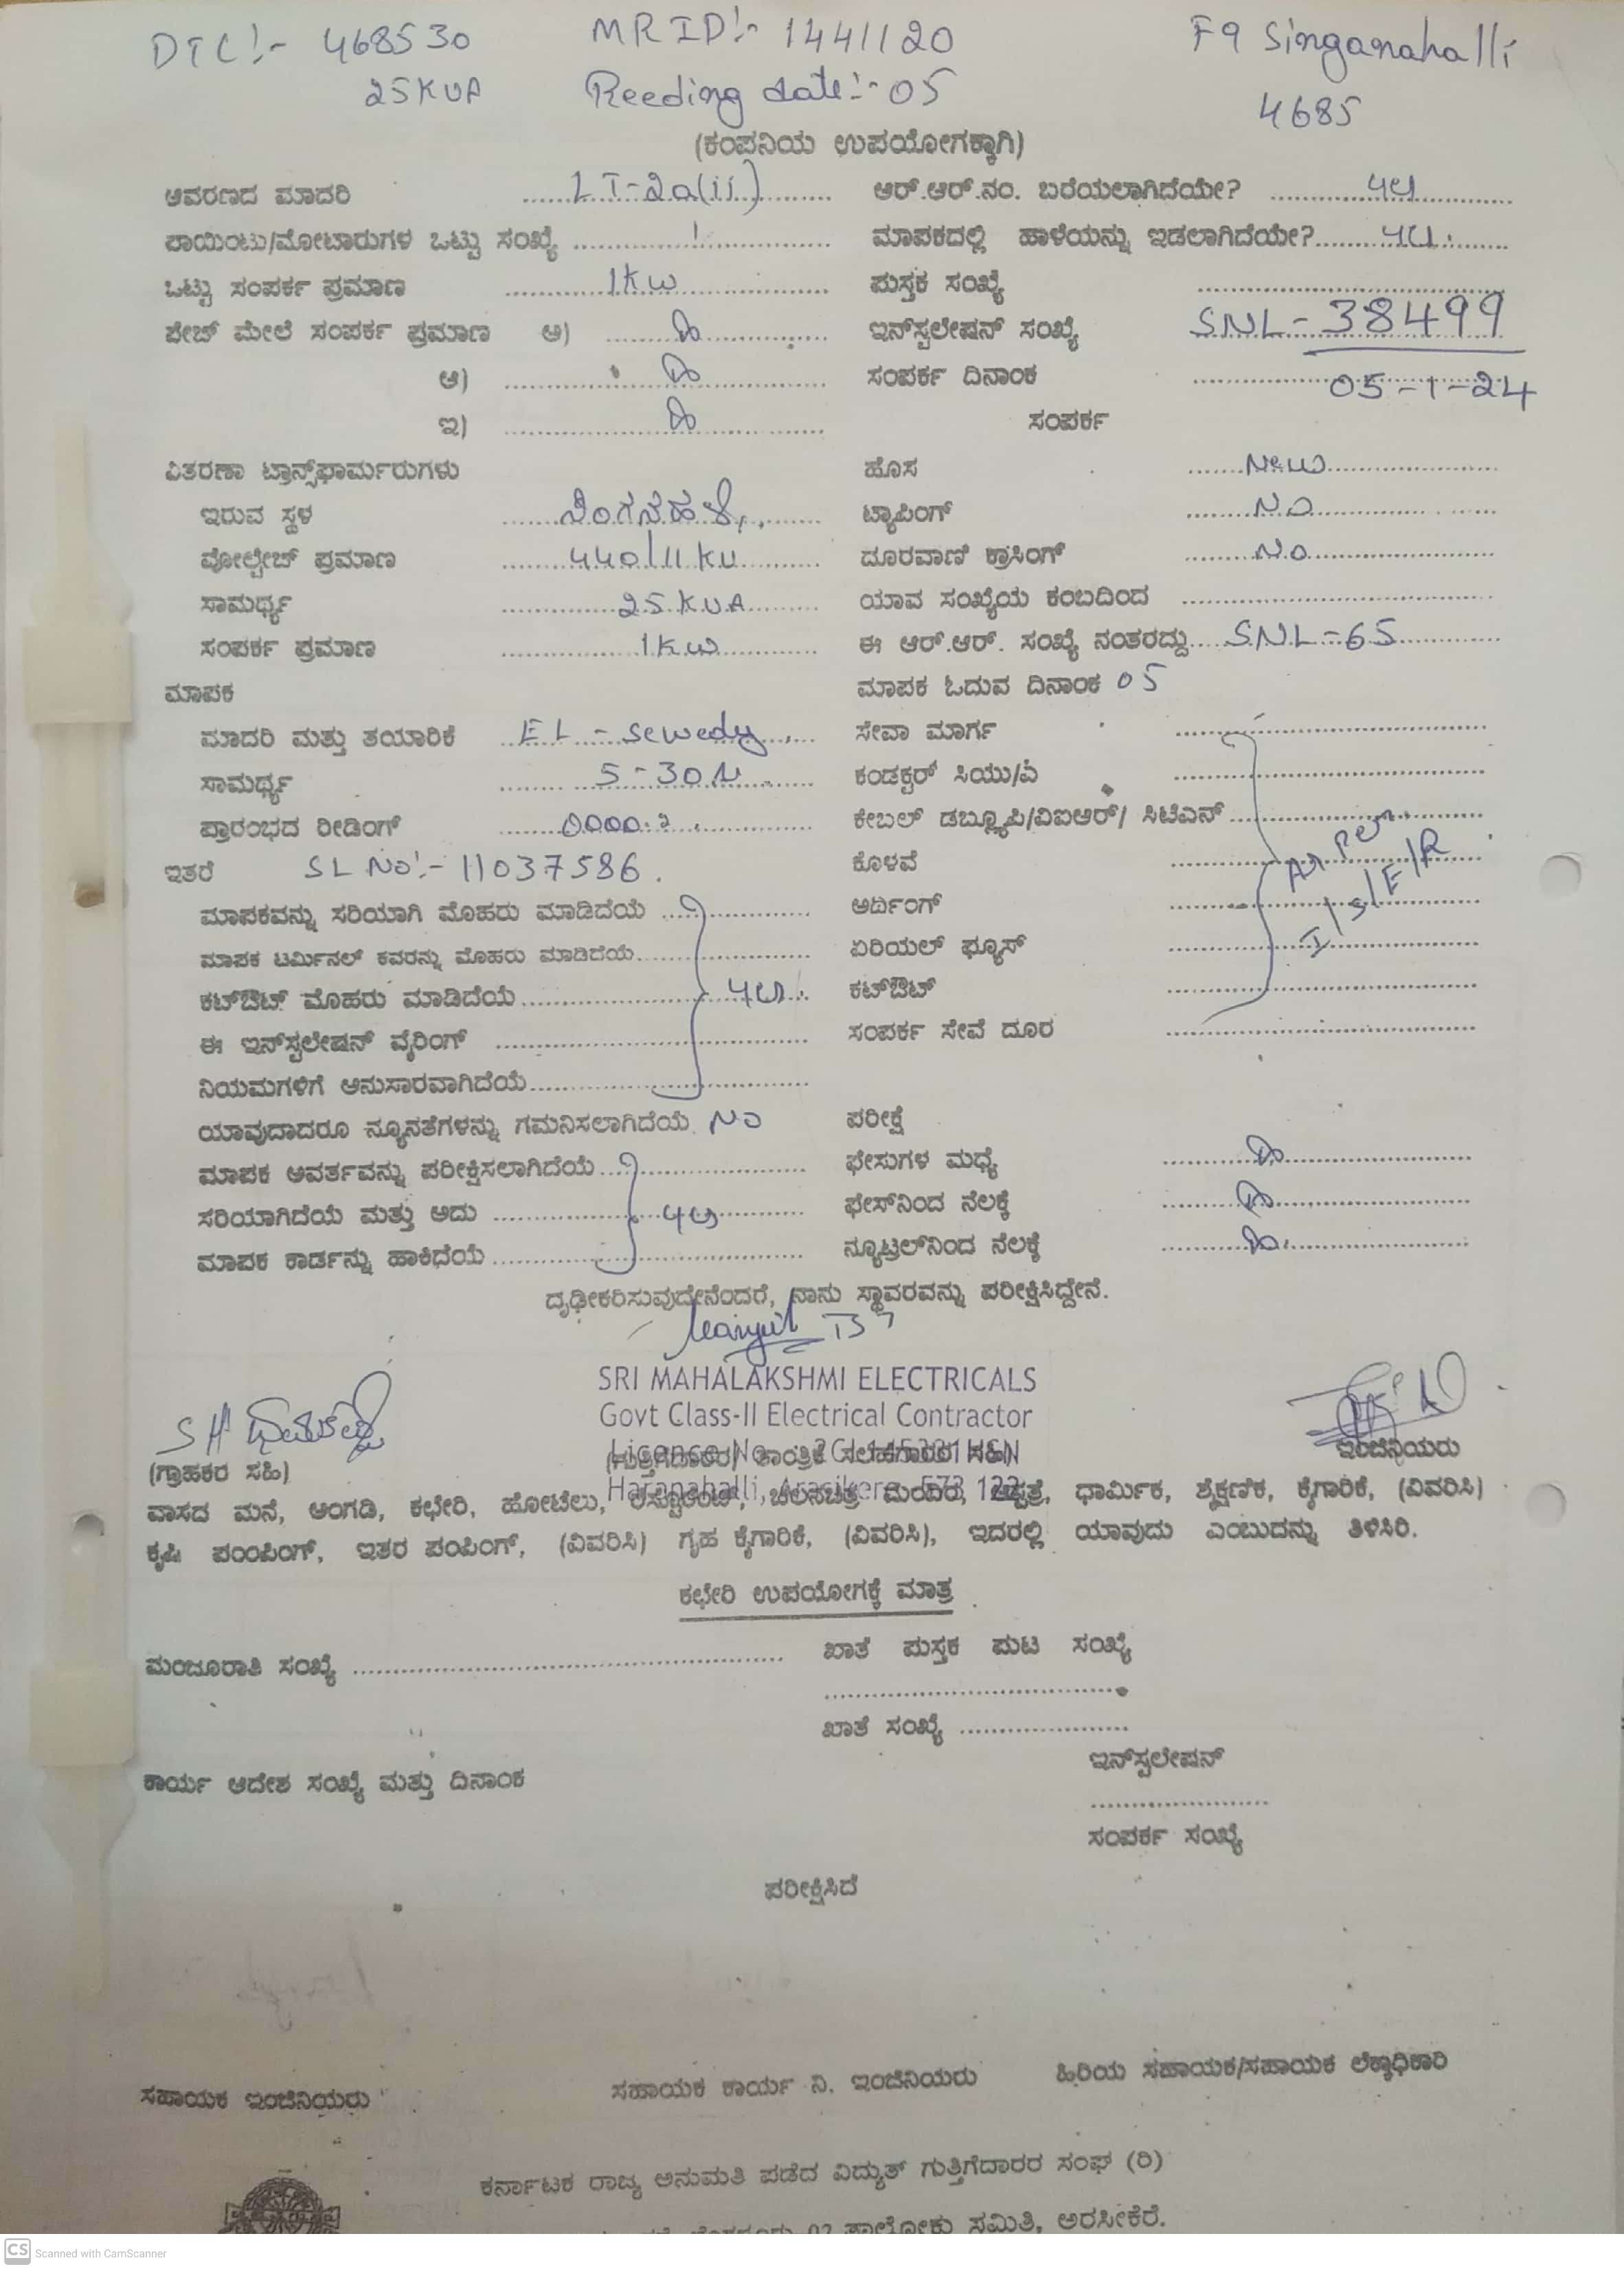 DTC:- 468530 MRID:- 1441120 F9 Singanahalli
25KVA Reeding date:- 05 4685
(ಕಂಪನಿಯ ಉಪಯೋಗಕ್ಕಾಗಿ)
ಆವರಣದ ಮಾದರಿ LT-2a(ii) ಆರ್.ಆರ್.ನಂ. ಬರೆಯಲಾಗಿದೆಯೇ?
ಪಾಯಿಂಟು/ಮೋಟಾರುಗಳ ಒಟ್ಟು ಸಂಖ್ಯೆ ಮಾಪಕದಲ್ಲಿ ಹಾಳೆಯನ್ನು ಇಡಲಾಗಿದೆಯೇ?
ಒಟ್ಟು ಸಂಪರ್ಕ ಪ್ರಮಾಣ 1KW ಪುಸ್ತಕ ಸಂಖ್ಯೆ
ಪೇಜ್ ಮೇಲೆ ಸಂಪರ್ಕ ಪ್ರಮಾಣ ಅ) ಇನ್‌ಸ್ಟಲೇಷನ್ ಸಂಖ್ಯೆ SNL-38499
ಆ) ಸಂಪರ್ಕ ದಿನಾಂಕ 05-1-24
ಇ) ಸಂಪರ್ಕ
ವಿತರಣಾ ಟ್ರಾನ್ಸ್‌ಫಾರ್ಮರುಗಳು ಹೊಸ New
ಇರುವ ಸ್ಥಳ ಟ್ಯಾಪಿಂಗ್ NO
ವೋಲ್ಟೇಜ್ ಪ್ರಮಾಣ 440/11KV ದೂರವಾಣಿ ಕ್ರಾಸಿಂಗ್ No
ಸಾಮರ್ಥ್ಯ 25KVA ಯಾವ ಸಂಖ್ಯೆಯ ಕಂಬದಿಂದ
ಸಂಪರ್ಕ ಪ್ರಮಾಣ 1KW ಈ ಆರ್.ಆರ್. ಸಂಖ್ಯೆ ನಂತರದ್ದು SNL-65
ಮಾಪಕ ಮಾಪಕ ಓದುವ ದಿನಾಂಕ 05
ಮಾದರಿ ಮತ್ತು ತಯಾರಿಕೆ EL-sewedy ಸೇವಾ ಮಾರ್ಗ
ಸಾಮರ್ಥ್ಯ 5-30 ಕಂಡಕ್ಟರ್ ಸಿಯು/ಏ
ಪ್ರಾರಂಭದ ರೀಡಿಂಗ್ ಕೇಬಲ್ ಡಬ್ಲ್ಯೂಪಿ/ವಿಐಆರ್/ ಸಿಟಿಎನ್
ಇತರೆ SL No:- 11037586. ಕೊಳವೆ As per
ಮಾಪಕವನ್ನು ಸರಿಯಾಗಿ ಮೊಹರು ಮಾಡಿದೆಯೆ ಅರ್ಥಿಂಗ್ I/S/E/R
ಮಾಪಕ ಟರ್ಮಿನಲ್ ಕವರನ್ನು ಮೊಹರು ಮಾಡಿದೆಯೆ ಏರಿಯಲ್ ಫ್ಯೂಸ್
ಕಟ್‌ಔಟ್ ಮೊಹರು ಮಾಡಿದೆಯೆ ಕಟ್‌ಔಟ್
ಈ ಇನ್‌ಸ್ಟಲೇಷನ್ ವೈರಿಂಗ್ ಸಂಪರ್ಕ ಸೇವೆ ದೂರ
ನಿಯಮಗಳಿಗೆ ಅನುಸಾರವಾಗಿದೆಯೆ
ಯಾವುದಾದರೂ ನ್ಯೂನತೆಗಳನ್ನು ಗಮನಿಸಲಾಗಿದೆಯೆ NO ಪರೀಕ್ಷೆ
ಮಾಪಕ ಆವರ್ತವನ್ನು ಪರೀಕ್ಷಿಸಲಾಗಿದೆಯೆ ಫೇಸುಗಳ ಮಧ್ಯೆ
ಸರಿಯಾಗಿದೆಯೆ ಮತ್ತು ಅದು ಫೇಸ್‌ನಿಂದ ನೆಲಕ್ಕೆ
ಮಾಪಕ ಕಾರ್ಡನ್ನು ಹಾಕಿದೆಯೆ ನ್ಯೂಟ್ರಲ್‌ನಿಂದ ನೆಲಕ್ಕೆ
ದೃಢೀಕರಿಸುವುದೇನೆಂದರೆ, ನಾನು ಸ್ಥಾವರವನ್ನು ಪರೀಕ್ಷಿಸಿದ್ದೇನೆ.
SRI MAHALAKSHMI ELECTRICALS
Govt Class-II Electrical Contractor
License No ಇಂಜಿನಿಯರು
(ಗ್ರಾಹಕರ ಸಹಿ) Haranahalli, Arasikere 573 122
ವಾಸದ ಮನೆ, ಅಂಗಡಿ, ಕಛೇರಿ, ಹೋಟೆಲು, ಮಂದಿರ, ಆಸ್ಪತ್ರೆ, ಧಾರ್ಮಿಕ, ಶೈಕ್ಷಣಿಕ, ಕೈಗಾರಿಕೆ, (ವಿವರಿಸಿ)
ಕೃಷಿ ಪಂಂಪಿಂಗ್, ಇತರ ಪಂಪಿಂಗ್, (ವಿವರಿಸಿ) ಗೃಹ ಕೈಗಾರಿಕೆ, (ವಿವರಿಸಿ), ಇದರಲ್ಲಿ ಯಾವುದು ಎಂಬುದನ್ನು ತಿಳಿಸಿರಿ.
ಕಛೇರಿ ಉಪಯೋಗಕ್ಕೆ ಮಾತ್ರ
ಮಂಜೂರಾತಿ ಸಂಖ್ಯೆ ಖಾತೆ ಪುಸ್ತಕ ಪುಟ ಸಂಖ್ಯೆ
ಖಾತೆ ಸಂಖ್ಯೆ
ಇನ್‌ಸ್ಟಲೇಷನ್
ಕಾರ್ಯ ಆದೇಶ ಸಂಖ್ಯೆ ಮತ್ತು ದಿನಾಂಕ
ಸಂಪರ್ಕ ಸಂಖ್ಯೆ
ಪರೀಕ್ಷಿಸಿದೆ
ಸಹಾಯಕ ಇಂಜಿನಿಯರು ಸಹಾಯಕ ಕಾರ್ಯ ನಿ. ಇಂಜಿನಿಯರು ಹಿರಿಯ ಸಹಾಯಕ/ಸಹಾಯಕ ಲೆಕ್ಕಾಧಿಕಾರಿ
ಕರ್ನಾಟಕ ರಾಜ್ಯ ಅನುಮತಿ ಪಡೆದ ವಿದ್ಯುತ್ ಗುತ್ತಿಗೆದಾರರ ಸಂಘ (ರಿ)
ತಾಲ್ಲೋಕು ಸಮಿತಿ, ಅರಸೀಕೆರೆ.
CS Scanned with CamScanner